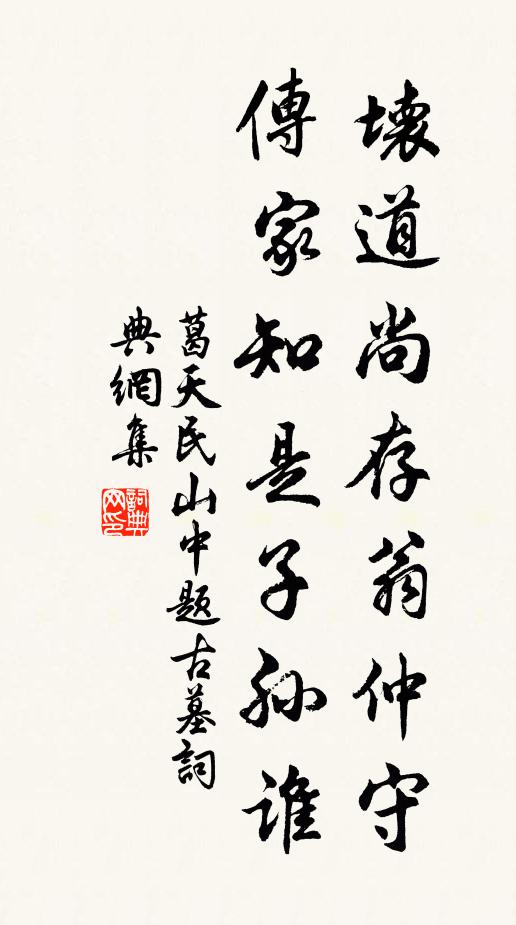 壞道尚存翁仲守
傳家知是子孫誰
葛天民山中題古墓詞
典網集
詞典网印